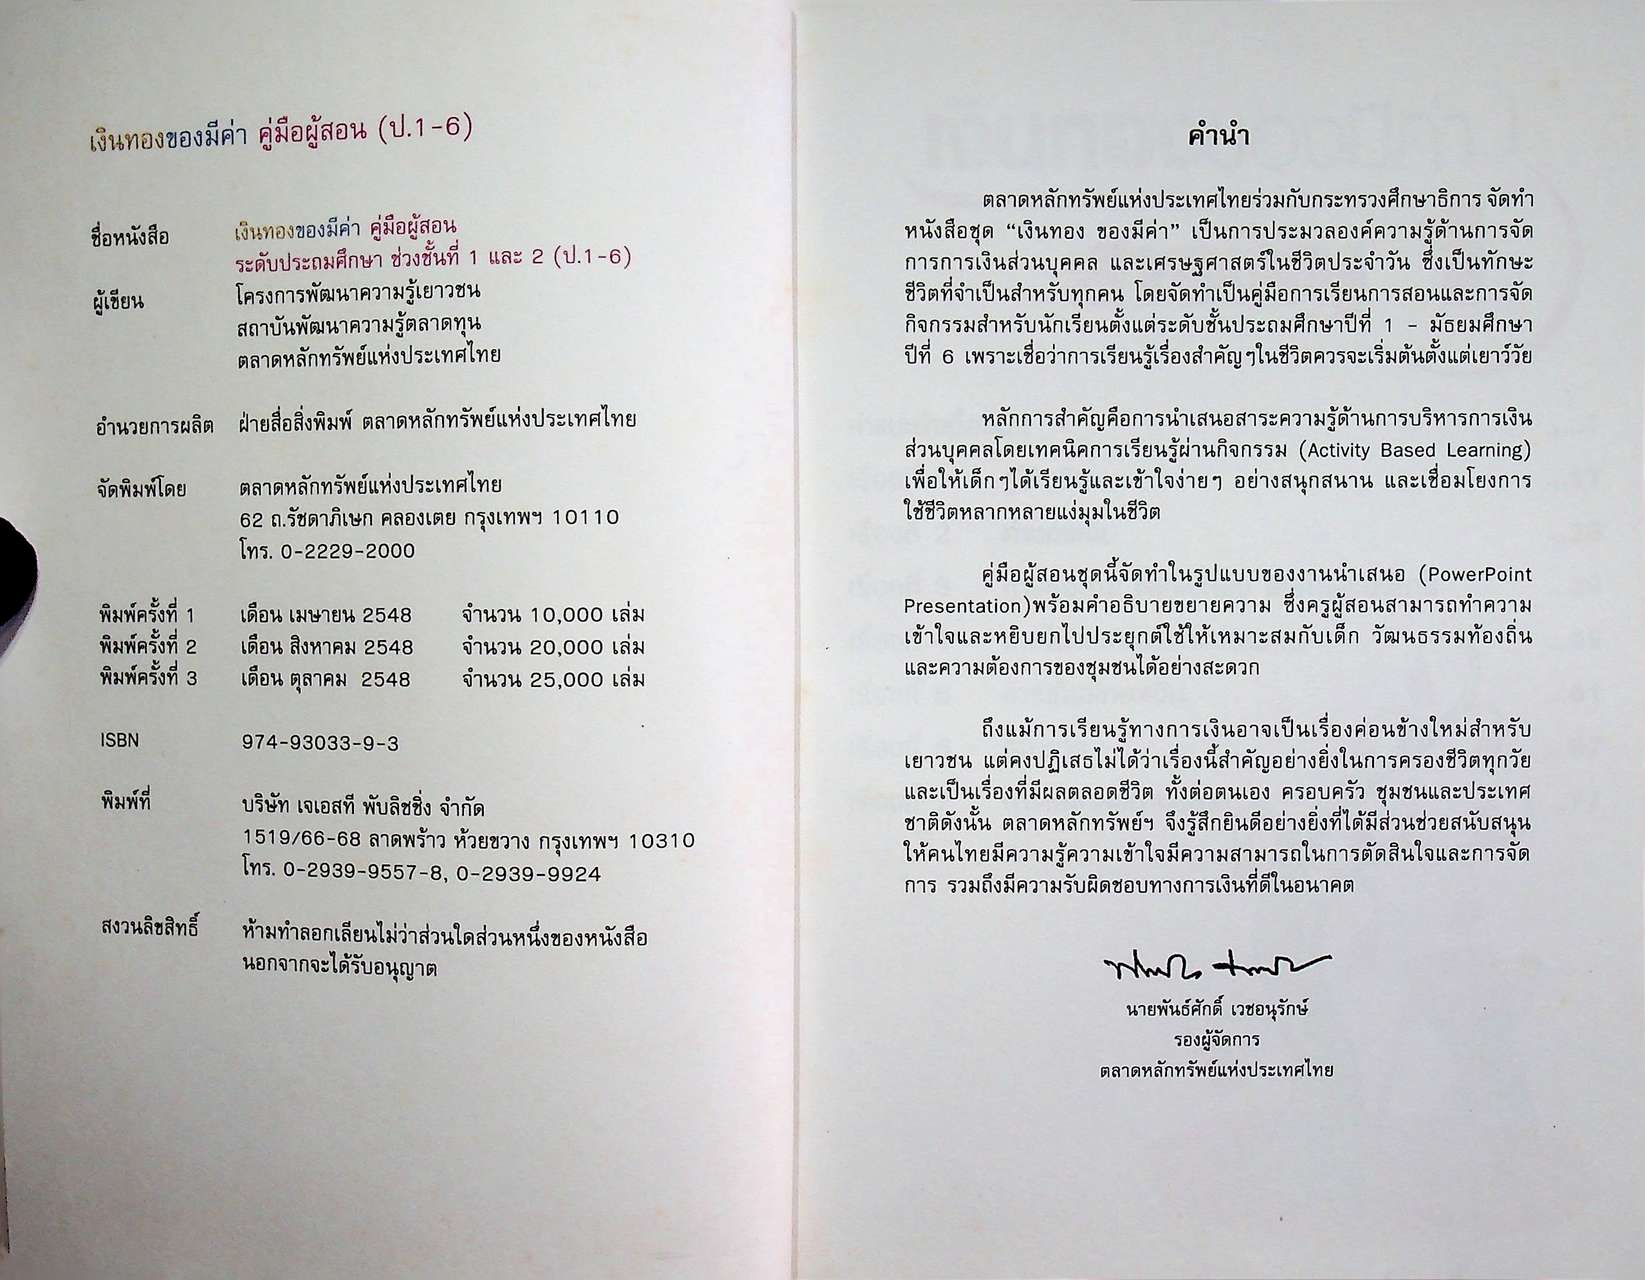 เงินทองของมีค่า คู่มือผู้สอน (ป.1-6)
ชื่อหนังสือ เงินทองของมีค่า คู่มือผู้สอน
ระดับประถมศึกษา ช่วงชั้นที่ 1 และ 2 (ป.1-6)
ผู้เขียน โครงการพัฒนาความรู้เยาวชน
สถาบันพัฒนาความรู้ตลาดทุน
ตลาดหลักทรัพย์แห่งประเทศไทย
อำนวยการผลิต ฝ่ายสื่อสิ่งพิมพ์ ตลาดหลักทรัพย์แห่งประเทศไทย
จัดพิมพ์โดย ตลาดหลักทรัพย์แห่งประเทศไทย
62 ถ.รัชดาภิเษก คลองเตย กรุงเทพฯ 10110
โทร. 0-2229-2000
พิมพ์ครั้งที่ 1 เดือน เมษายน 2548 จำนวน 10,000 เล่ม
พิมพ์ครั้งที่ 2 เดือน สิงหาคม 2548 จำนวน 20,000 เล่ม
พิมพ์ครั้งที่ 3 เดือน ตุลาคม 2548 จำนวน 25,000 เล่ม
ISBN 974-93033-9-3
พิมพ์ที่ บริษัท เจเอสที พับลิชชิ่ง จำกัด
1519/66-68 ลาดพร้าว ห้วยขวาง กรุงเทพฯ 10310
โทร. 0-2939-9557-8, 0-2939-9924
สงวนลิขสิทธิ์ ห้ามทำลอกเลียนไม่ว่าส่วนใดส่วนหนึ่งของหนังสือ
นอกจากจะได้รับอนุญาต
คำนำ
ตลาดหลักทรัพย์แห่งประเทศไทยร่วมกับกระทรวงศึกษาธิการ จัดทำ
หนังสือชุด “เงินทอง ของมีค่า” เป็นการประมวลองค์ความรู้ด้านการจัด
การการเงินส่วนบุคคล และเศรษฐศาสตร์ในชีวิตประจำวัน ซึ่งเป็นทักษะ
ชีวิตที่จำเป็นสำหรับทุกคน โดยจัดทำเป็นคู่มือการเรียนการสอนและการจัด
กิจกรรมสำหรับนักเรียนตั้งแต่ระดับชั้นประถมศึกษาปีที่ 1 - มัธยมศึกษา
ปีที่ 6 เพราะเชื่อว่าการเรียนรู้เรื่องสำคัญๆในชีวิตควรจะเริ่มต้นตั้งแต่เยาว์วัย
หลักการสำคัญคือการนำเสนอสาระความรู้ด้านการบริหารการเงิน
ส่วนบุคคลโดยเทคนิคการเรียนรู้ผ่านกิจกรรม (Activity Based Learning)
เพื่อให้เด็กๆได้เรียนรู้และเข้าใจง่ายๆ อย่างสนุกสนาน และเชื่อมโยงการ
ใช้ชีวิตหลากหลายแง่มุมในชีวิต
คู่มือผู้สอนชุดนี้จัดทำในรูปแบบของงานนำเสนอ (PowerPoint
Presentation)พร้อมคำอธิบายขยายความ ซึ่งครูผู้สอนสามารถทำความ
เข้าใจและหยิบยกไปประยุกต์ใช้ให้เหมาะสมกับเด็ก วัฒนธรรมท้องถิ่น
และความต้องการของชุมชนได้อย่างสะดวก
ถึงแม้การเรียนรู้ทางการเงินอาจเป็นเรื่องค่อนข้างใหม่สำหรับ
เยาวชน แต่คงปฏิเสธไม่ได้ว่าเรื่องนี้สำคัญอย่างยิ่งในการครองชีวิตทุกวัย
และเป็นเรื่องที่มีผลตลอดชีวิต ทั้งต่อตนเอง ครอบครัว ชุมชนและประเทศ
ชาติดังนั้น ตลาดหลักทรัพย์ฯ จึงรู้สึกยินดีอย่างยิ่งที่ได้มีส่วนช่วยสนับสนุน
ให้คนไทยมีความรู้ความเข้าใจมีความสามารถในการตัดสินใจและการจัด
การ รวมถึงมีความรับผิดชอบทางการเงินที่ดีในอนาคต
นายพันธ์ศักดิ์ เวชอนุรักษ์
รองผู้จัดการ
ตลาดหลักทรัพย์แห่งประเทศไทย